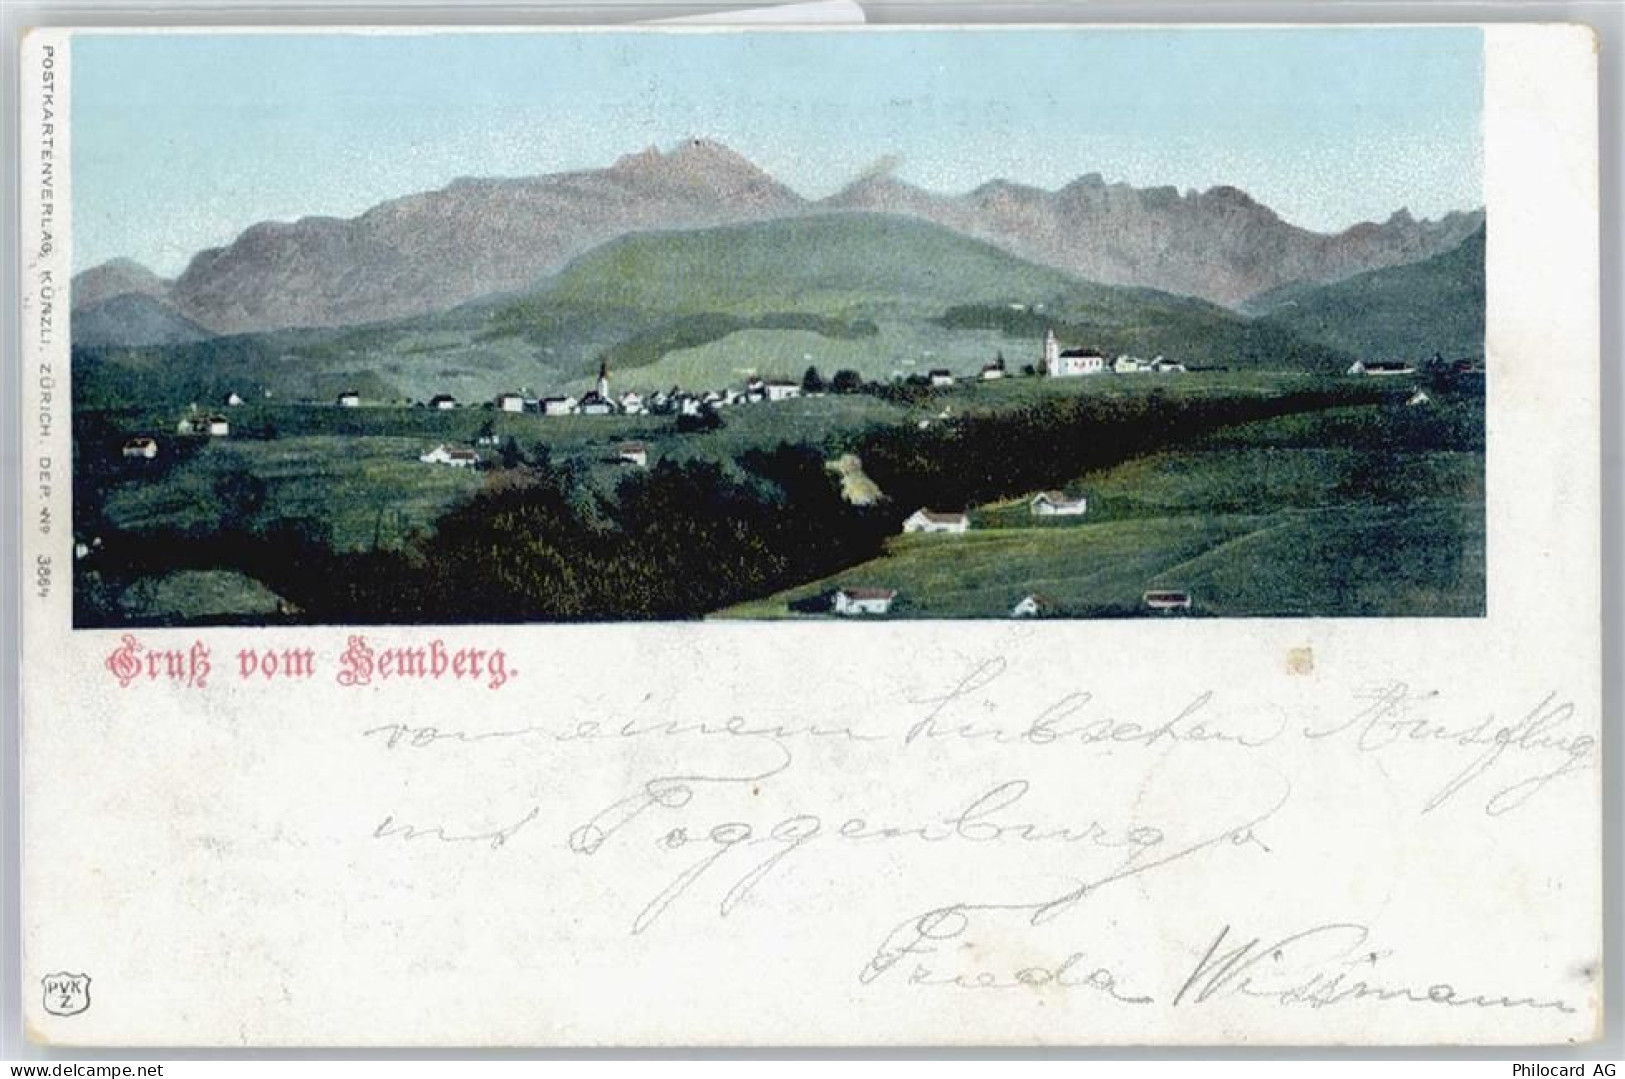 POSTKARTENVERLAG, KÜNZLI, ZÜRICH. DEP. No 3864
Gruß vom Hemberg.
von einem hübschen Ausflug
ins Toggenburg
Frieda Wissmann
PVK
Z
delcampe.net
Philocard AG